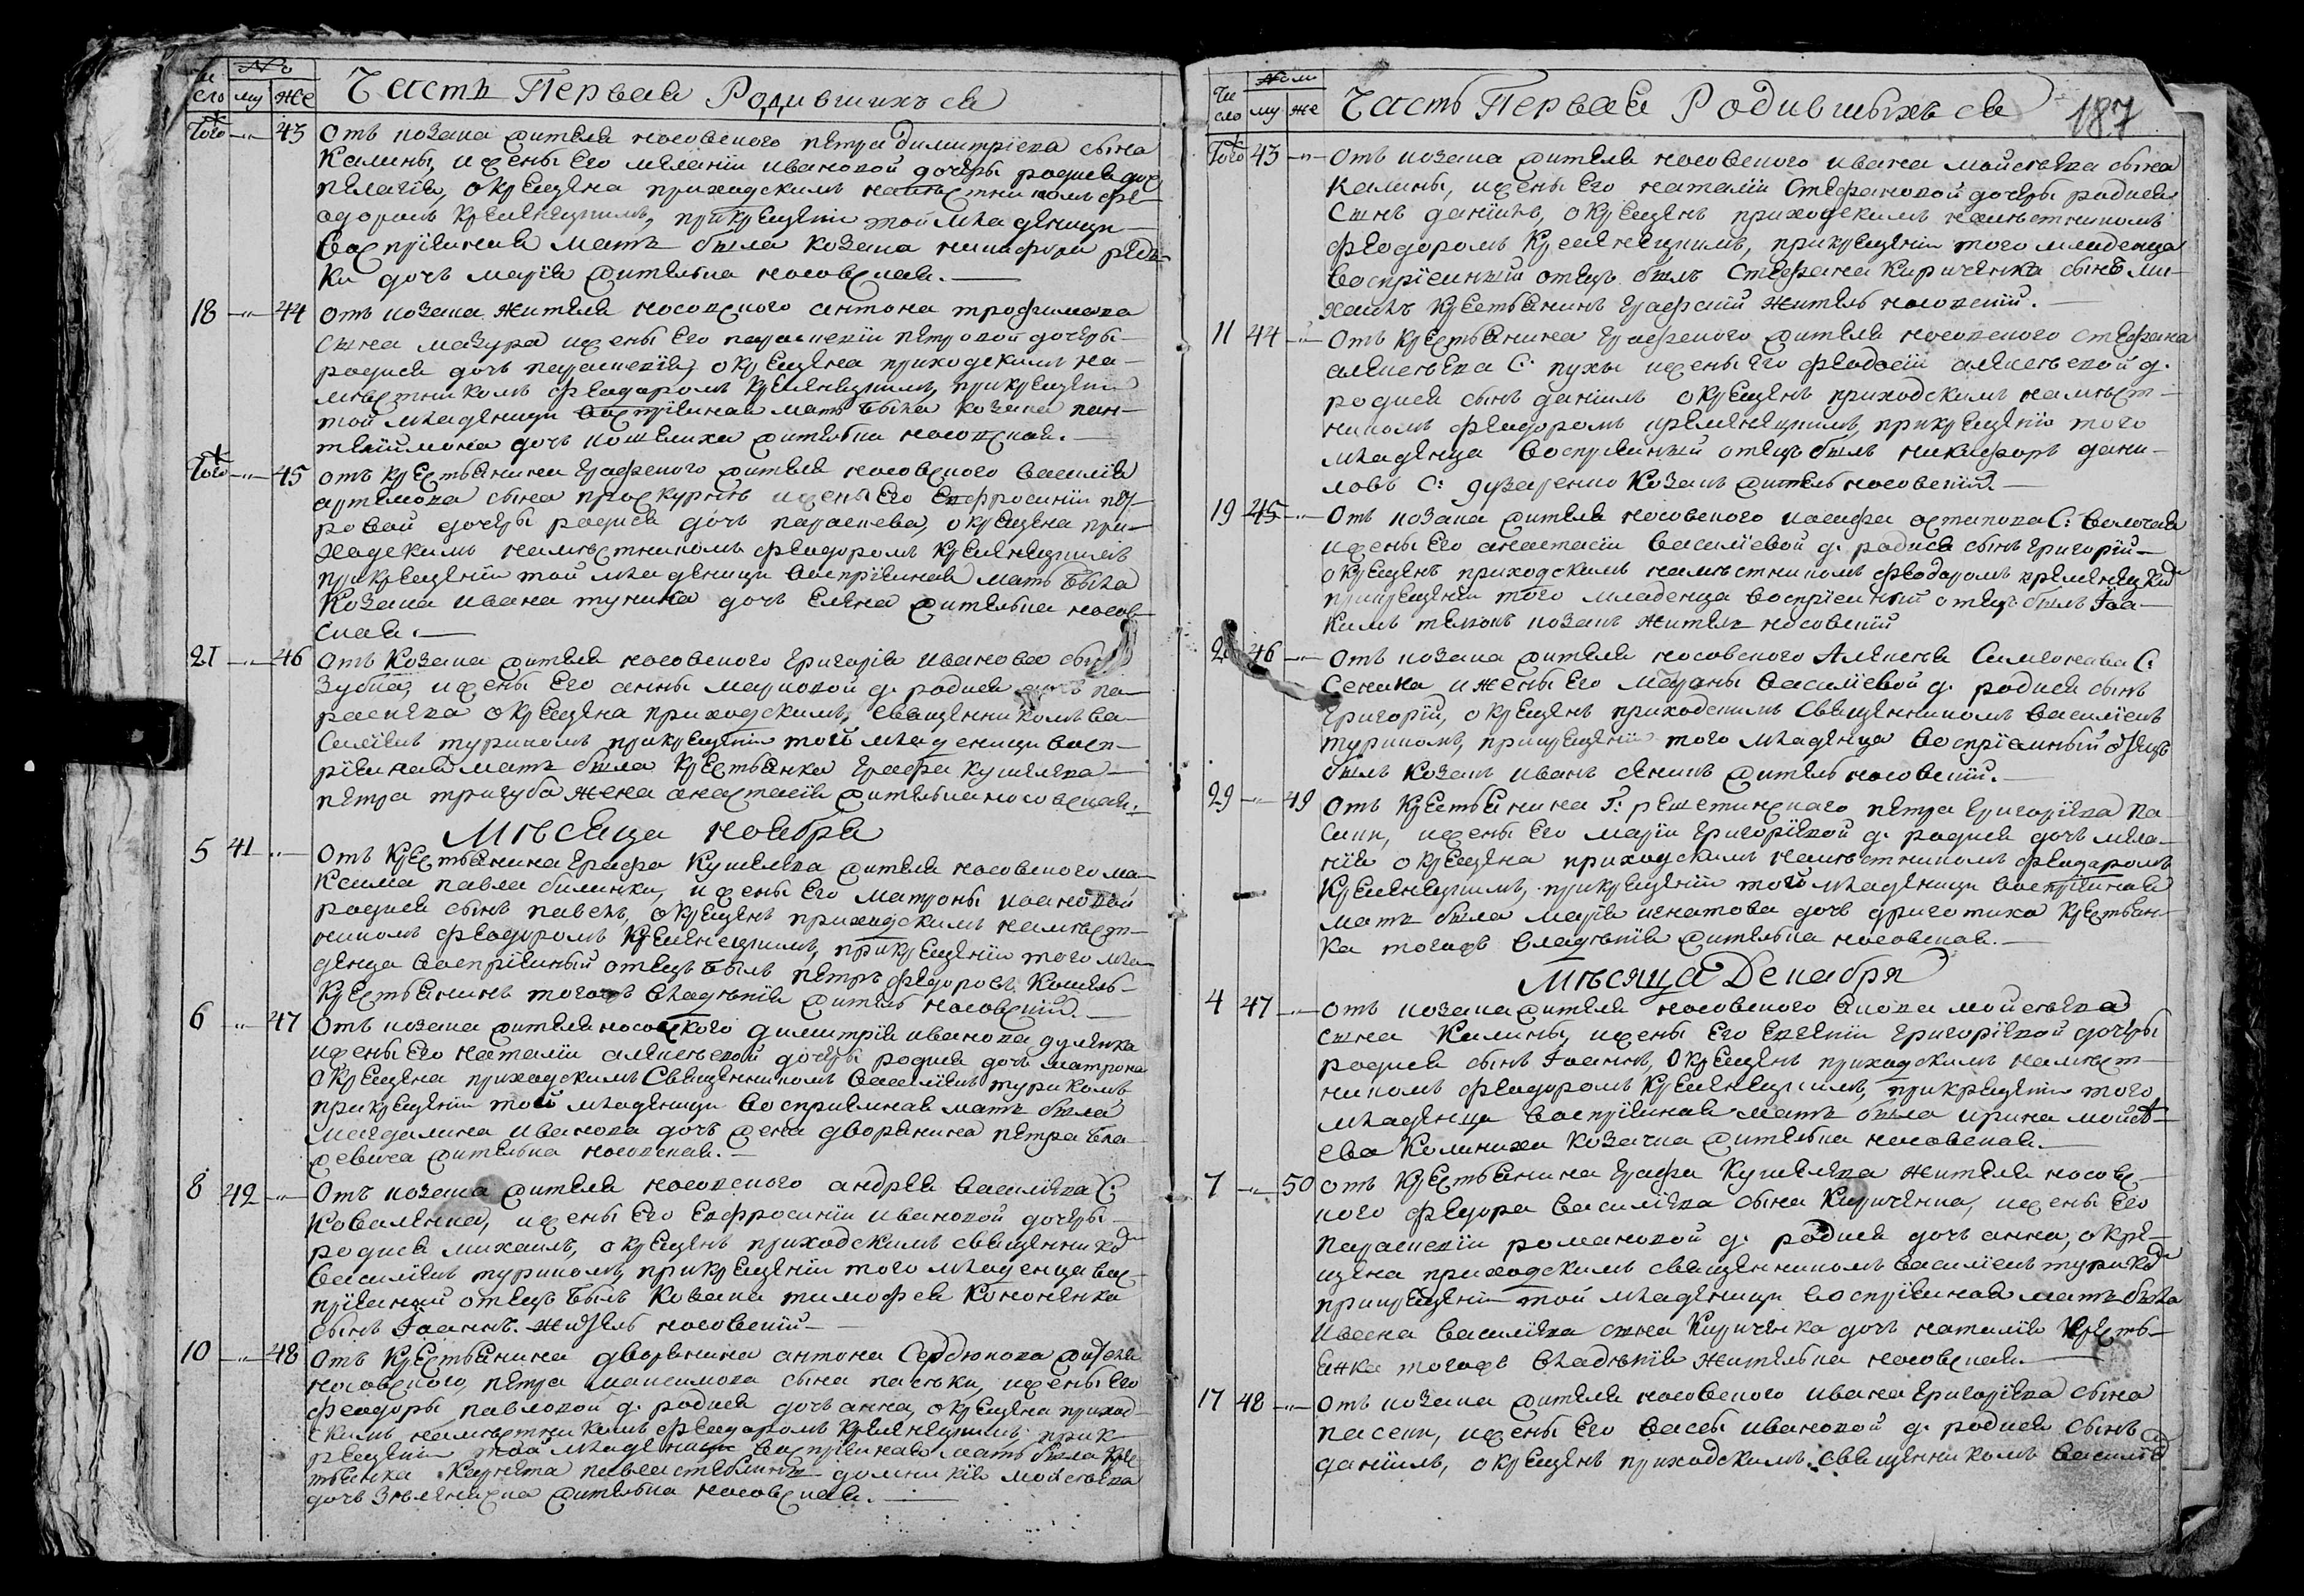 Чи
сло
№
му
же
Часть Первая Родившихъ ся
Того -"- 43 Отъ козака жителя носовского петра димитріева сына
Калины, и жены его меланіи ивановой дочеры родися дочь
пелагія, окрещена приходскимъ наместникомъ фе-
одоромъ кременецкимъ, при крещеніи той младеници
воспріемная мать была козака никифора редь-
ки дочь марія жителька носовская.
18 -"- 44 Отъ козака жителя носовского антона трофимова
сына мазура и жены его параскевіи петровой дочеры
родися дочь параскевія, окрещена приходскимъ на-
местникомъ феодоромъ кременецкимъ, при крещеніи
той младеници воспріемная мать была козака пан-
телиймона дочь кошелиха жителька носовская.
Того -"- 45 Отъ крестьянина графского жителя носовского василія
артемова сына проскурнѣ и жены его евфросиніи пет-
ровой дочеры родися дочь параскева, окрещена при-
ходскимъ наместникомъ феодоромъ кременецкимъ
при крещеніи той младеници воспріемная мать была
козака ивана туника дочь елена жителька носов-
ская.
21 -"- 46 Отъ козака жителя носовского григорія иванова сы
зубка, и жены его анны марковой д. родися дочь па-
раскева окрещена приходскимъ, священникомъ ва-
силіемъ турикомъ при крещеніи той младеници восп-
ріемная мать была крестьянка графа кушелева
петра тригуба жена анастасія жителька носовская.
Мѣсяца ноября
5 41 -"- Отъ крестьянина графа Кушелева жителя носовского ма-
ксима павла билинки, и жены его матроны ивановой
родися сынъ павелъ, окрещенъ приходскимъ намест-
никомъ феодоромъ кременецкимъ, при крещеніи того мла-
денца воспріемный отецъ былъ петръ федоровъ Кошель-
крестьянинъ тогожъ владѣнія житель носовскій.
6 -"- 47 Отъ козака жителя носовского димитрія иванова дуленка
и жены его наталіи алексѣевой дочеры родися дочь матрона
окрещена приходскимъ священникомъ василіемъ турикомъ
при крещеніи той младеници воспріемная мать была
магдалина иванова дочь жена дворянина петра бла-
жевича жителька носовская.
8 42 -"- Отъ козака жителя носовского андрея василіева С:
коваленка, и жены его евфросиніи ивановой дочеры
родися михаилъ, окрещенъ приходскимъ священнико
василіемъ турикомъ, при крещеніи того младенца вос-
пріемный отецъ былъ козака тимофея кононенка
сынъ Іоаннъ. житель носовскій
10 -"- 48 Отъ крестьянина дворянина антона Сердюкова жителя
носовского, петра максимова сына паська, и жены его
феодоры павловой д. родися дочь анна, окрещена приход-
скимъ наместникомъ феодоромъ кременецкимъ при к-
рещеніи той младеници воспріемная мать была кре-
стьянка корнета павла домникія мойсѣева
дочь зѣленская жителька носовская.
Чи
сло
Ном
му
же
Часть Первая Родившыхъ ся 187
Того 43 -"- Отъ козака жителя носовского ивана мойсѣева сына
Калины, и жены его наталіи Стефановой дочеры родися
Сынъ даніилъ, окрещенъ приходскимъ наместникомъ
феодоромъ кременецкимъ, при крещеніи того младенца
воспріемный отецъ былъ стефана Кириченка сынъ ми-
хаилъ крестьянинъ графскій житель носовскій.
11 44 -"- Отъ крестьянина графского жителя носовского стефана
алексѣева С: пухы и жены его феодосіи алексѣевой д.
родися сынъ даніилъ окрещенъ приходскимъ намест-
никомъ феодоромъ кременецкимъ, при крещеніи того
младенца воспріемный отецъ былъ никифоръ дани-
ловъ С: дузаренко козакъ житель носовскій.
19 45 -"- Отъ козака жителя носовского иосифа остапова С: волочая
и жены его анастасіи василіевой д. родися сынъ григорій
окрещенъ приходскимъ наместникомъ феодоромъ кременецки
при крещеніи того младенца воспріемный отецъ былъ Іоа-
кимъ козакъ житель носовскій
2 46 -"- Отъ козака жителя носовского Алексѣя Симеонова С:
Сеника и жены его марины василіевой д. родися сынъ
григорій, окрещенъ приходскимъ священникомъ василіемъ
турикомъ, при крещеніи того младенца воспріемный отецъ
былъ козакъ иванъ сеникъ житель носовскій.
29 -"- 49 Отъ крестьянина Г: решетинского петра григоріева па-
сики, и жены его маріи григоріевой д. родися дочь мела-
нія окрещена приходскимъ наместникомъ феодоромъ
кременецкимъ, при крещеніи той младеници воспріемная
мать была марія игнатова дочь дриготиха крестьян-
ка тогожъ владѣнія жителька носовская.
Мѣсяца Декабря
4 47 -"- Отъ козака жителя носовского якова мойсѣева
сына Калины, и жены его евгеніи григоріевой дочеры
родися сынъ Іоаннъ, окрещенъ приходскимъ намест-
никомъ феодоромъ кременецкимъ, при крещеніи того
младенца воспріемная мать была ирина мойсѣ-
ева Калиниха козачка жителька носовская.
7 -"- 50 Отъ крестьянина графа Кушелева жителя носовс-
кого федора василіева сына Кириченка, и жены его
параскевіи романовой д. родися дочь анна, окре-
щена приходскимъ священникомъ василіемъ турико
при крещеніи той младеници воспріемная мать была
ивана василіева сына Кириченка дочь наталія кресть-
янка тогожъ владѣнія жителька носовская.
17 48 -"- Отъ козака жителя носовского ивана григоріева сына
пасеки, и жены его вассы ивановой д. родися сынъ
даніилъ, окрещенъ приходскимъ священникомъ василіе